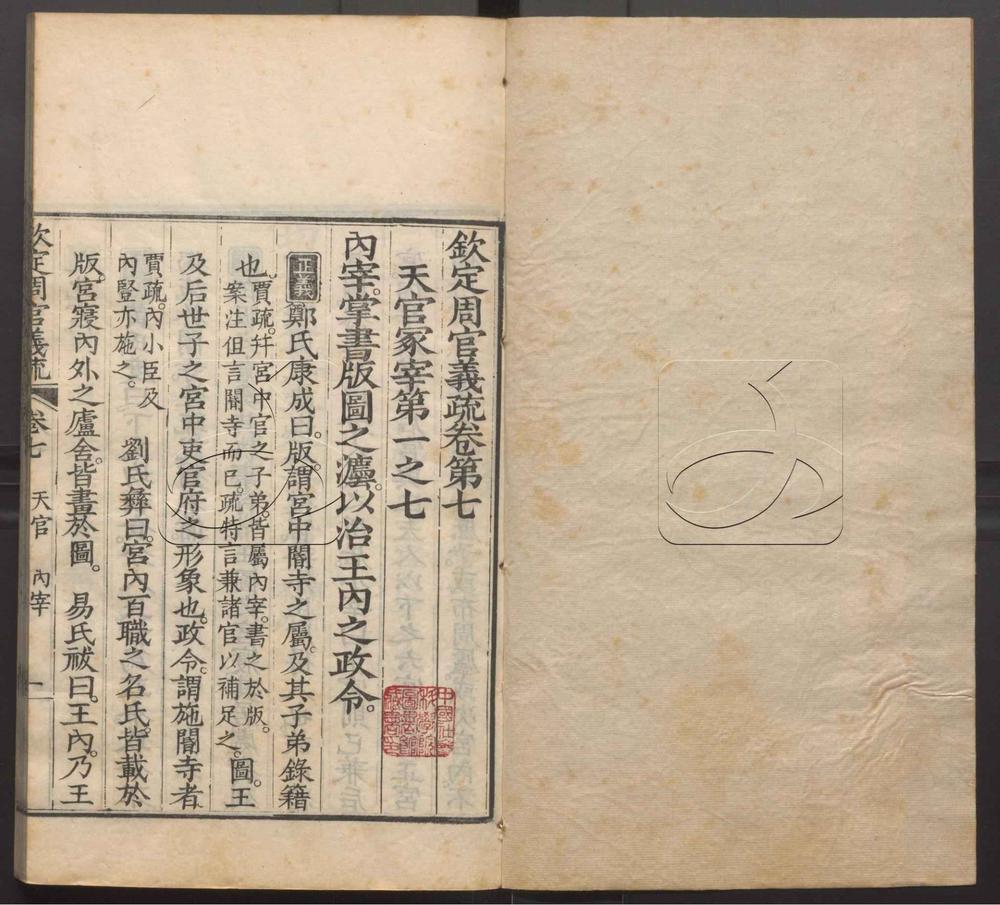 欽定周官義疏卷第七
天官冢宰第一之七
內宰。掌書版圖之灋。以治王內之政令。
正義 鄭氏康成曰。版。謂宮中閽寺之屬。及其子弟錄籍
也。賈疏。幷宮中官之子弟。皆屬內宰。書之於版。
案注但言閽寺而已。疏特言兼諸官以補足之。圖。王
及后世子之宮中吏官府之形象也。政令。謂施閽寺者
賈疏。內小臣及
內豎亦施之。
劉氏彝曰。宮內百職之名氏。皆載於
版。宮寢內外之廬舍。皆畫於圖。 易氏祓曰。王內。乃王
欽定周官義疏 卷七 天官 內宰 一